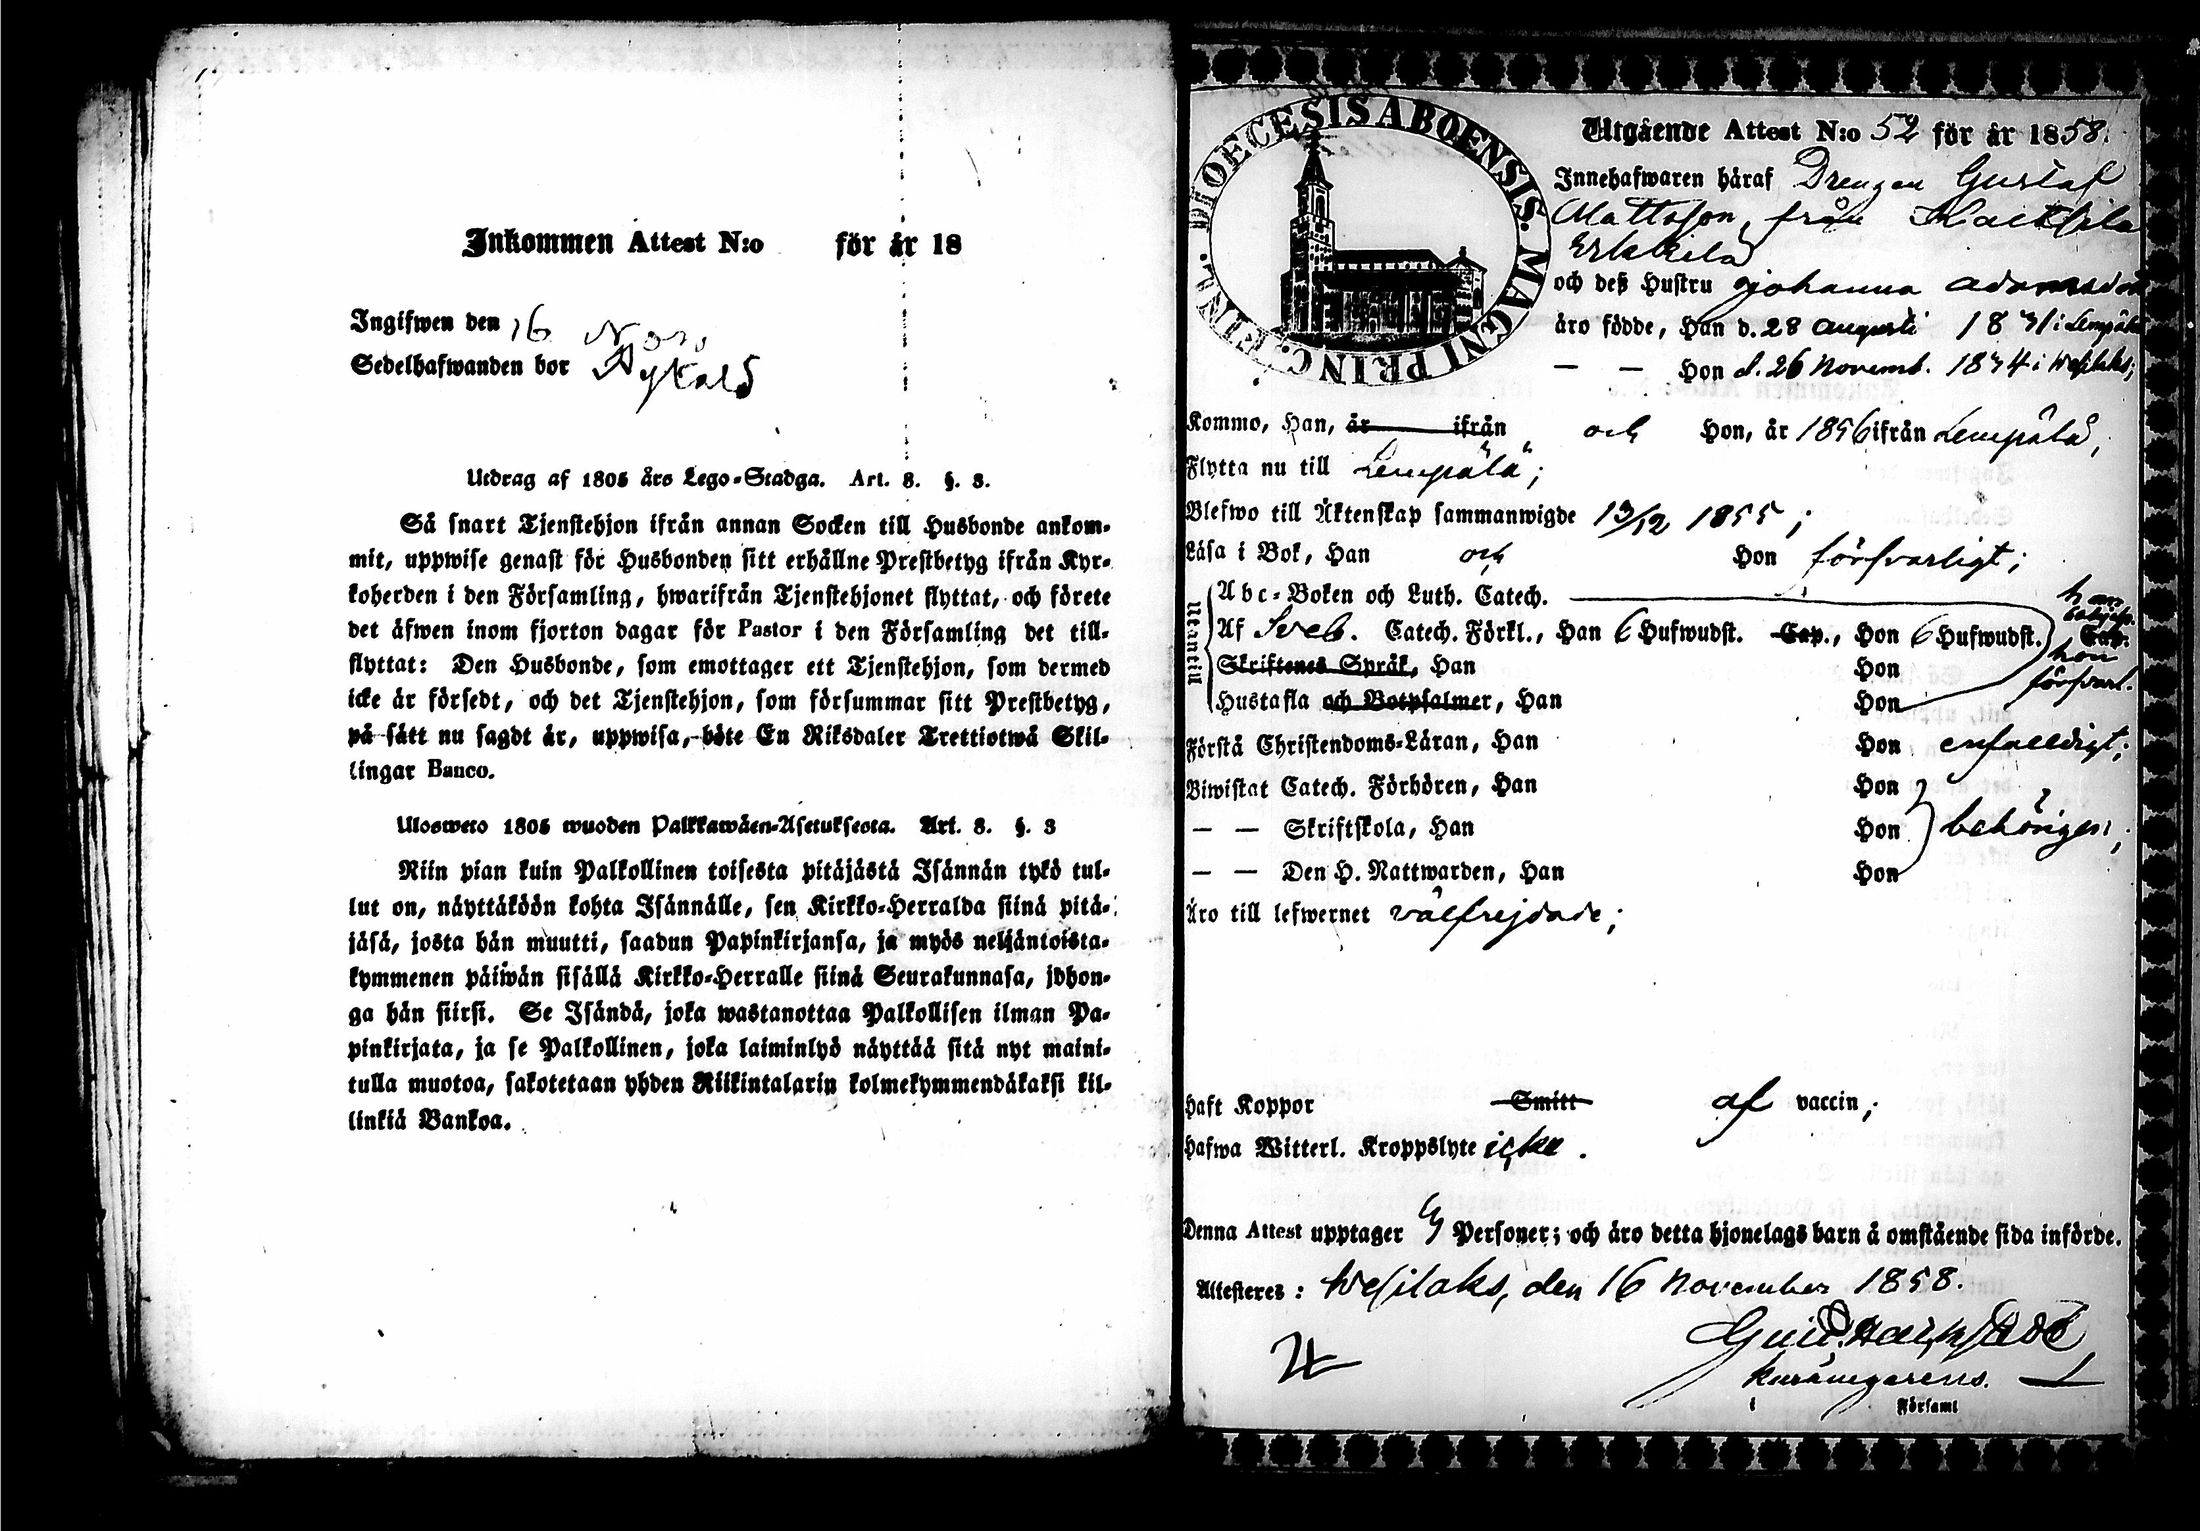 Inkommen Attest N:o för år 18
Ingifwen den 16 Nov.
Sedelhafwanden bor
Utdrag af 1805 års Lego-Stadga. Art. 8. §. 3.
Så snart Tjenstehjon ifrån annan Socken till Husbonde ankom-
mit, uppwise genast för Husbonden sitt erhållne Prestbetyg ifrån Kyr-
koherden i den Församling, hwarifrån Tjenstehjonet flyttat, och förete
det äfwen inom fjorton dagar för Pastor i den Församling det till-
flyttat: Den Husbonde, som emottager ett Tjenstehjon, som dermed
icke är försedt, och det Tjenstehjon, som försummar sitt Prestbetyg,
på sätt nu sagdt är, uppwisa, böte En Riksdaler Trettiotwå Skil-
lingar Banco.
Ulosweto 1805 wuoden Palkkawäen-Asetuksesta. Art. 8. §. 3
Niin pian kuin Palkollinen toisesta pitäjästä Isännän tykö tul-
lut on, näyttäköön kohta Isännälle, sen Kirkko-Herralda siinä pitä-
jäsä, josta hän muutti, saadun Papinkirjansa, ja myös neljäntoista-
kymmenen päiwän sisällä Kirkko-Herralle siinä Seurakunnasa, johon-
ga hän siirsi. Se Isändä, joka wastanottaa Palkollisen ilman Pa-
pinkirjata, ja se Palkollinen, joka laiminlyö näyttää sitä nyt maini-
tulla muotoa, sakotetaan yhden Riikintalarin kolmekymmendäkaksi kil-
linkiä Bankoa.
DIOECESIS ABOENSIS. MAGNI PRINC. FINL.
Utgående Attest N:o 52 för år 1858.
Innehafwaren häraf Drengen Gustaf
Mattsson, från
Erkkilä
och deß Hustru Johanna Adamsdotr
äro födde, Han d. 28 Augusti 1831 i Lempälä
— — Hon d. 26 Novemb. 1834 i Wesilaks;
Kommo, Han, år ifrån och Hon, år 1856 ifrån Lempälä,
Flytta nu till Lempälä;
Blefwo till Äktenskap sammanwigde 13/12 1855;
Läsa i Bok, Han och Hon försvarligt;
Utantill
Abc-Boken och Luth. Catech.
Af Sveb. Catech. Förkl., Han 6 Hufwudst. Cap., Hon 6 Hufwudst. Cap.
han
hon
försvarl.
Skriftenes Språk, Han Hon
Hustafla och Botpsalmer, Han Hon
Förstå Christendoms-Läran, Han Hon enfaldigt;
Biwistat Catech. Förhören, Han Hon
— — Skriftskola, Han Hon behörigen;
— — Den H. Nattwarden, Han Hon
Äro till lefwernet välfrejdade;
Haft Koppor Smitt af vaccin;
Hafwa Witterl. Kroppslyte icke.
Denna Attest upptager Personer; och äro detta hjonelags barn å omstående sida införde.
Attesteres: Wesilaks, den 16 November 1858.
i Församl